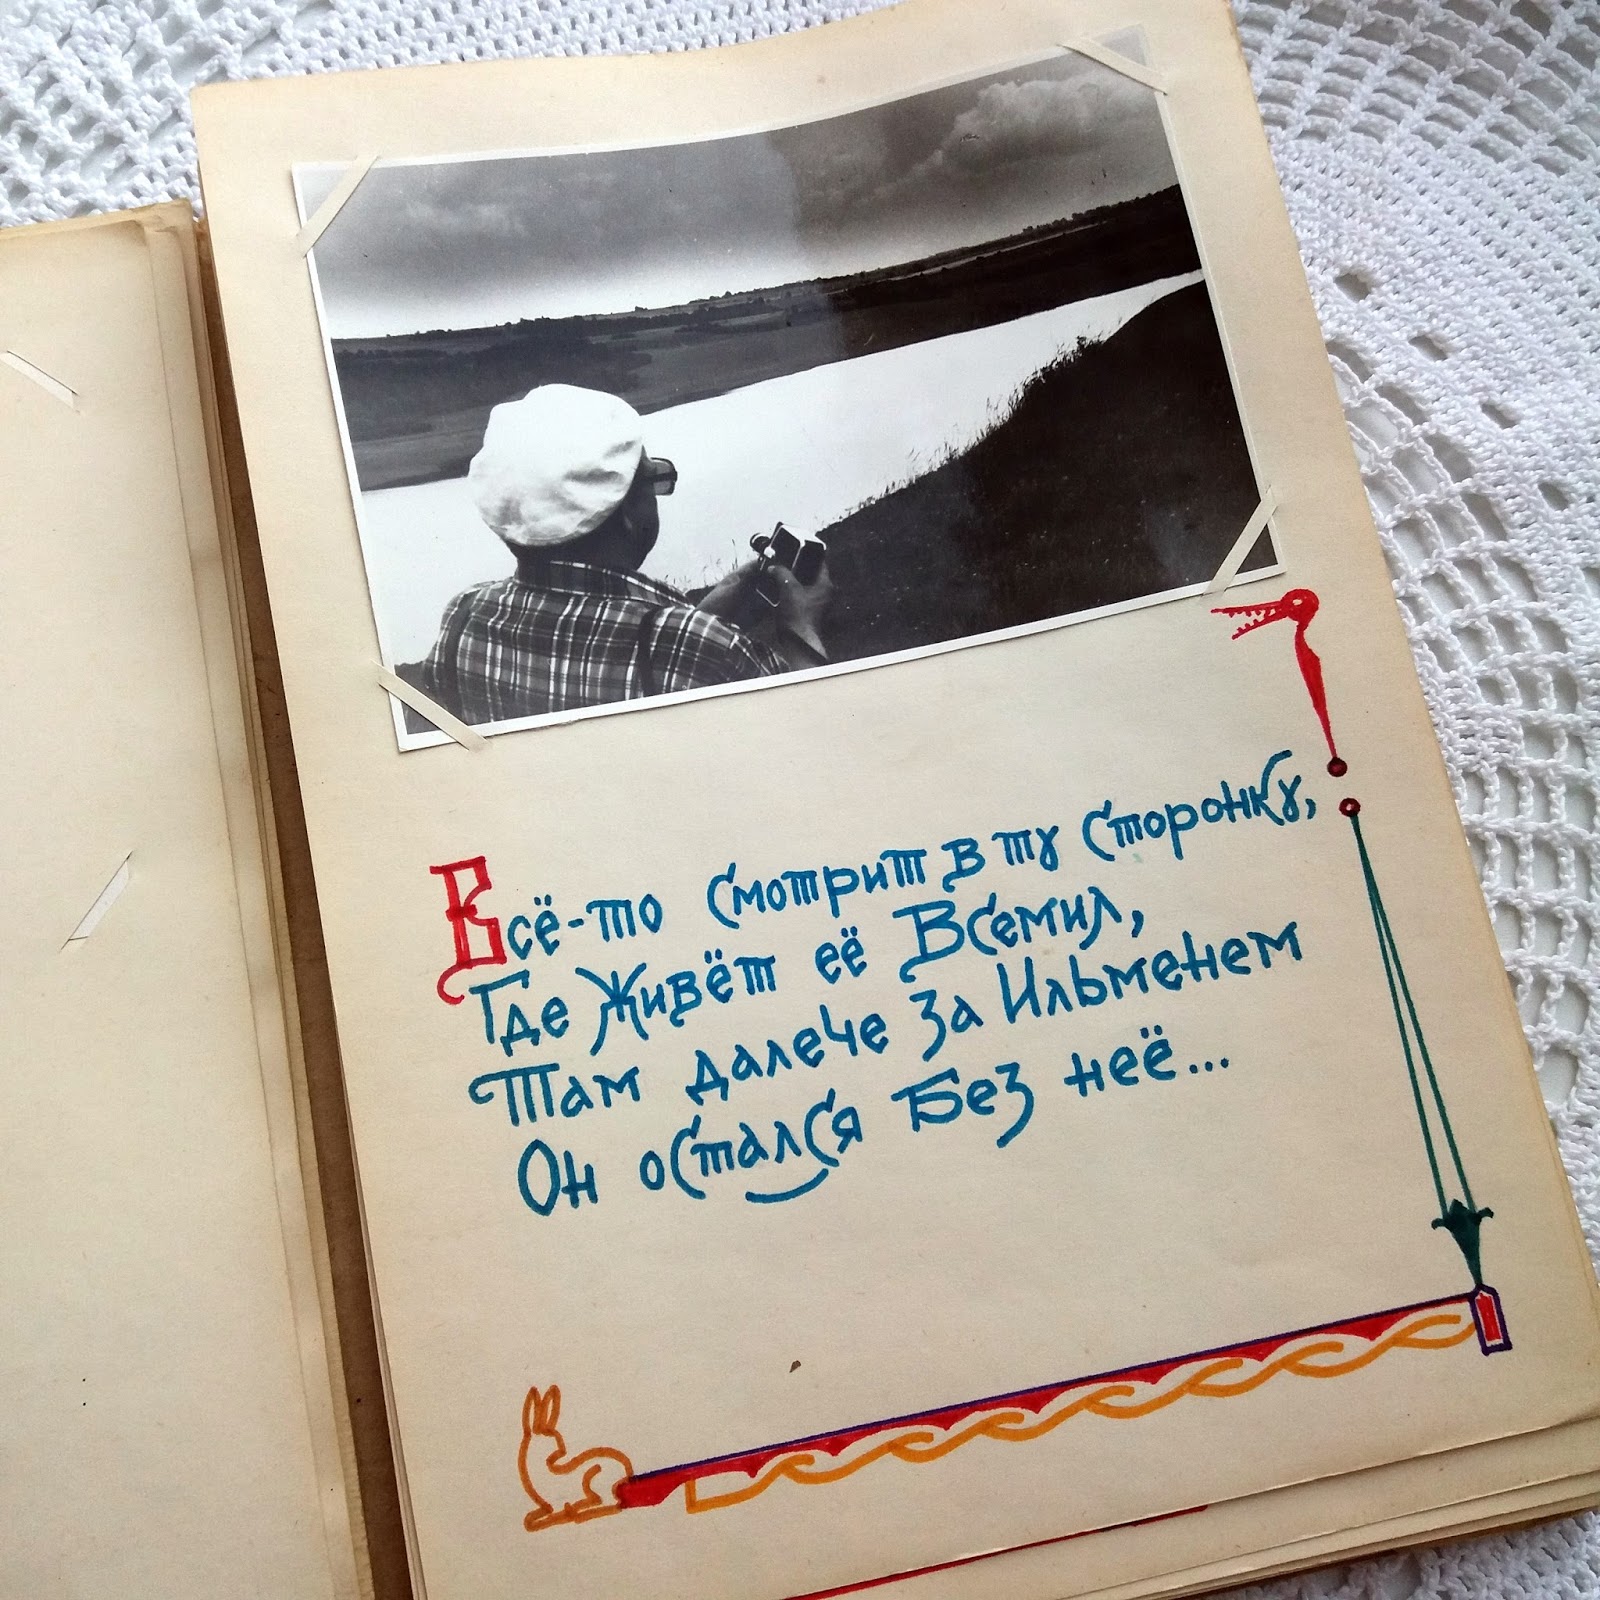 Всё-то смотрит в ту сторонку,
Где живёт её Всемил,
Там далече за Ильменем
Он остался без неё...